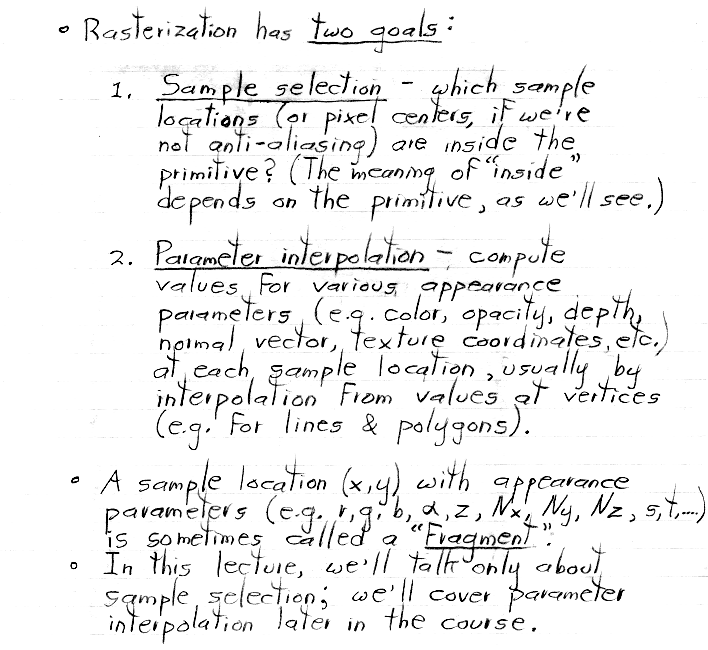 • Rasterization has two goals:
1. Sample selection - which sample
locations (or pixel centers, if we're
not anti-aliasing) are inside the
primitive? (The meaning of "inside"
depends on the primitive, as we'll see.)
2. Parameter interpolation - compute
values for various appearance
parameters (e.g. color, opacity, depth,
normal vector, texture coordinates, etc.)
at each sample location, usually by
interpolation from values at vertices
(e.g. for lines & polygons).
• A sample location (x,y) with appearance
parameters (e.g. r,g,b,α,z,Nx,Ny,Nz,s,t,....)
is sometimes called a "Fragment".
• In this lecture, we'll talk only about
sample selection; we'll cover parameter
interpolation later in the course.